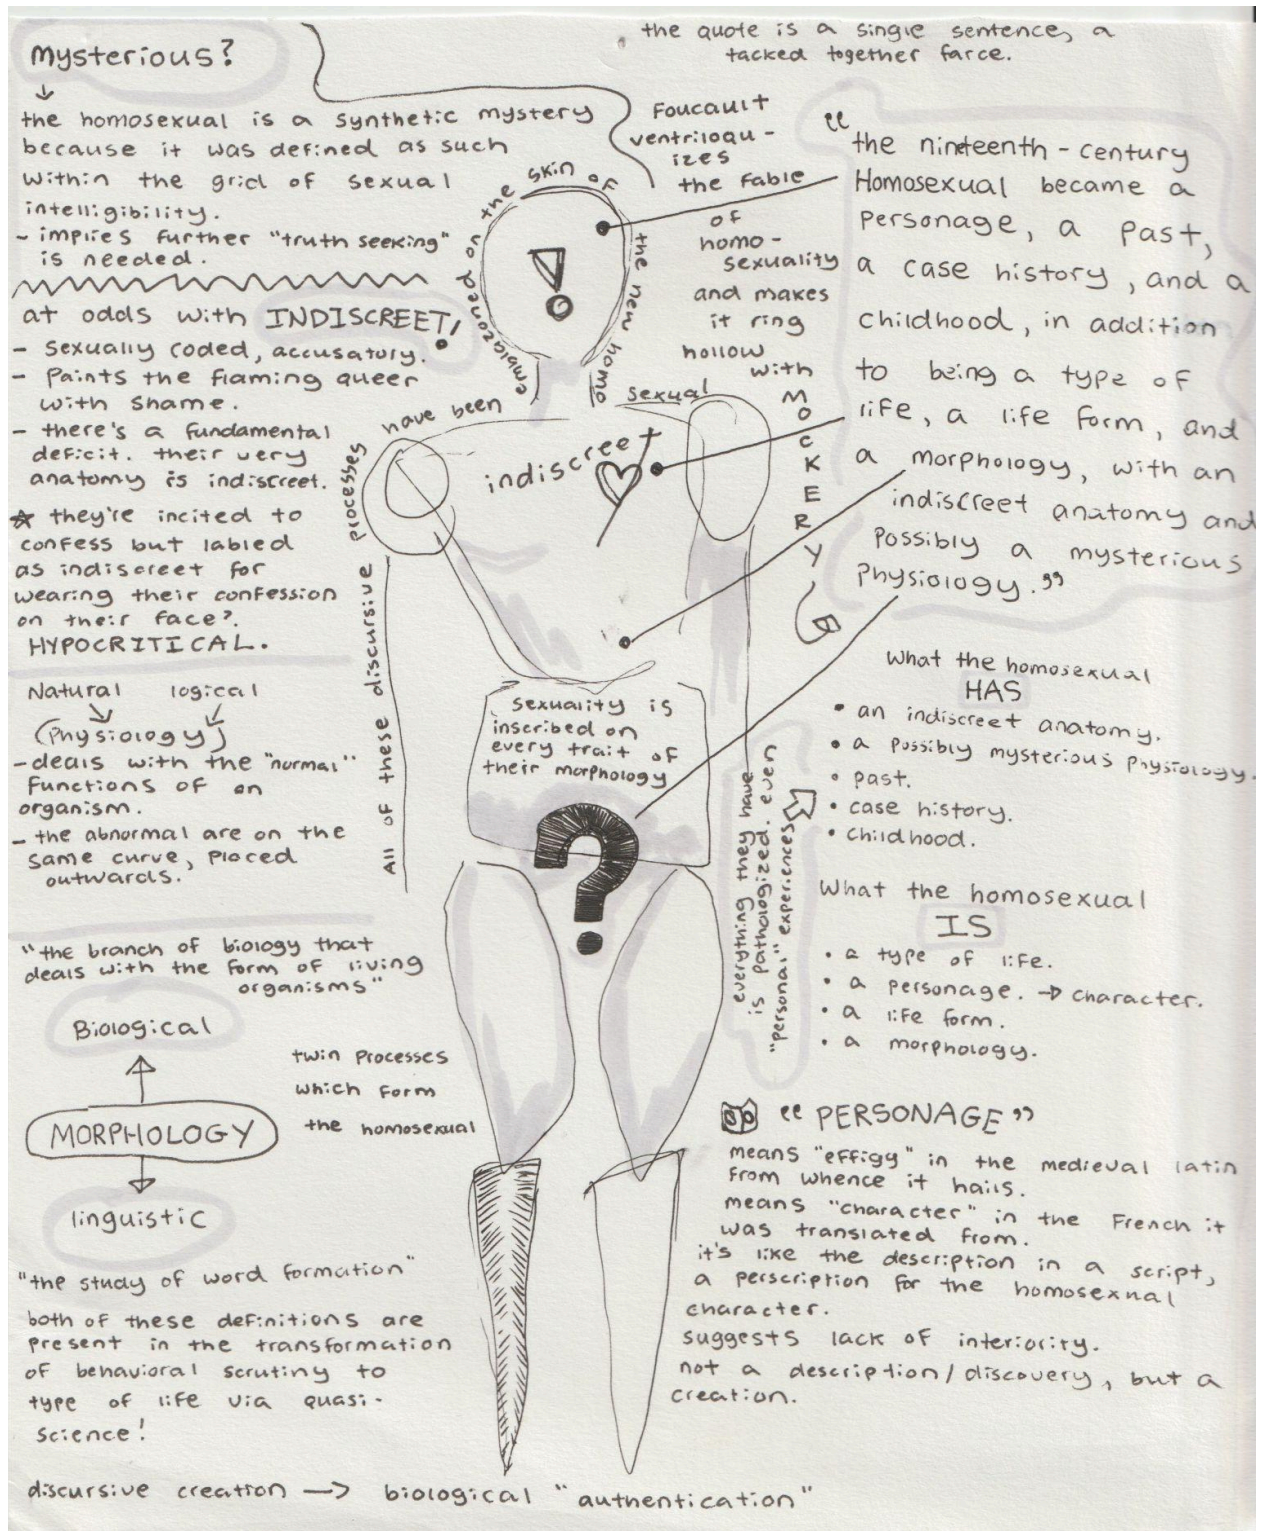 the quote is a single sentence, a
tacked together farce.
Mysterious?
the homosexual is a synthetic mystery
because it was defined as such
within the grid of sexual
intelligibility.
- implies further "truth seeking"
is needed.
at odds with INDISCREET!
- sexually coded, accusatory.
- paints the flaming queer
with shame.
- there's a fundamental
deficit. their very
anatomy is indiscreet.
☆ they're incited to
confess but labled
as indiscreet for
wearing their confession
on their face?
HYPOCRITICAL.
Natural logical
(Physiology)
- deals with the "normal"
functions of an
organism.
- the abnormal are on the
same curve, placed
outwards.
"the branch of biology that
deals with the form of living
organisms"
Biological
MORPHOLOGY
linguistic
twin processes
which form
the homosexual
"the study of word formation"
both of these definitions are
present in the transformation
of behavioral scrutiny to
type of life via quasi-
science!
discursive creation → biological "authentication"
All of these discursive processes have been emblazoned on the skin of the new homo sexual
!
indiscreet
sexuality is
inscribed on
every trait of
their morphology
?
Foucault
ventriloqu-
izes
the fable
of
homo-
sexuality
and makes
it ring
hollow
with
MOCKERY
"the nineteenth-century
Homosexual became a
personage, a past,
a case history, and a
childhood, in addition
to being a type of
life, a life form, and
a morphology, with an
indiscreet anatomy and
possibly a mysterious
physiology."
What the homosexual
HAS
• an indiscreet anatomy.
• a possibly mysterious physiology.
• past.
• case history.
• childhood.
everything they have
is pathologized. even
"personal" experiences
What the homosexual
IS
• a type of life.
• a personage. → character.
• a life form.
• a morphology.
"PERSONAGE"
means "effigy" in the medieval latin
from whence it hails.
means "character" in the French it
was translated from.
it's like the description in a script,
a perscription for the homosexual
character.
suggests lack of interiority.
not a description/discovery, but a
creation.